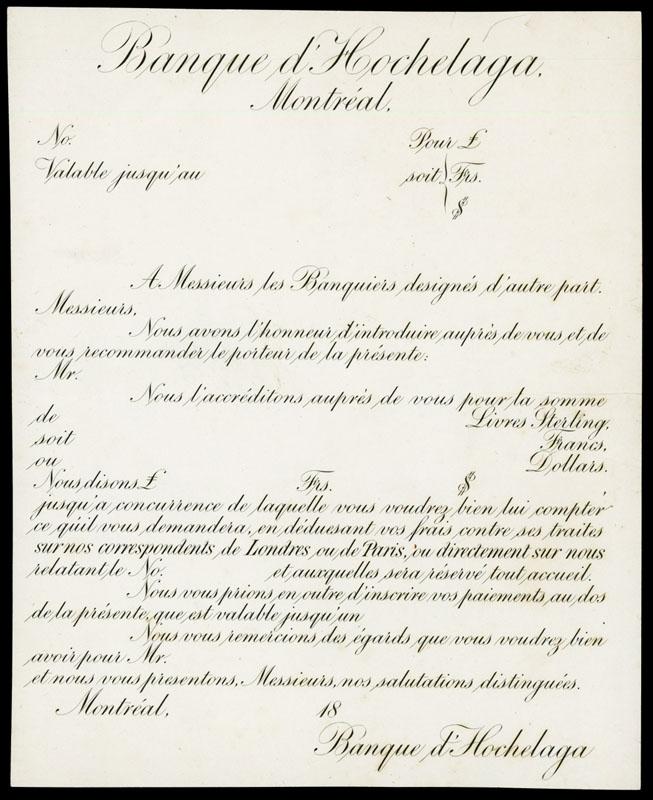 Banque d'Hochelaga.
Montréal.
No. Pour £
Valable jusqu'au soit Frs.
$
A Messieurs les Banquiers designés d'autre part.
Messieurs,
Nous avons l'honneur d'introduire auprès de vous et de
vous recommander le porteur de la présente:
Mr.
Nous l'accréditons auprès de vous pour la somme
de Livres Sterling.
soit Francs.
ou Dollars.
Nous disons £ Frs. $
jusqu'a concurrence de laquelle vous voudrez bien lui compter
ce qu'il vous demandera, en déduesant vos frais contre ses traites
sur nos correspondents, de Londres ou de Paris, ou directement sur nous
relatant le No. et auxquelles sera réservé tout accueil.
Nous vous prions, en outre, d'inscrire vos paiements, au dos
de la présente, que est valable jusqu'un
Nous vous remercions des égards, que vous voudrez bien
avoir pour Mr.
et nous vous presentons, Messieurs, nos salutations distinguées.
Montréal, 18
Banque d'Hochelaga